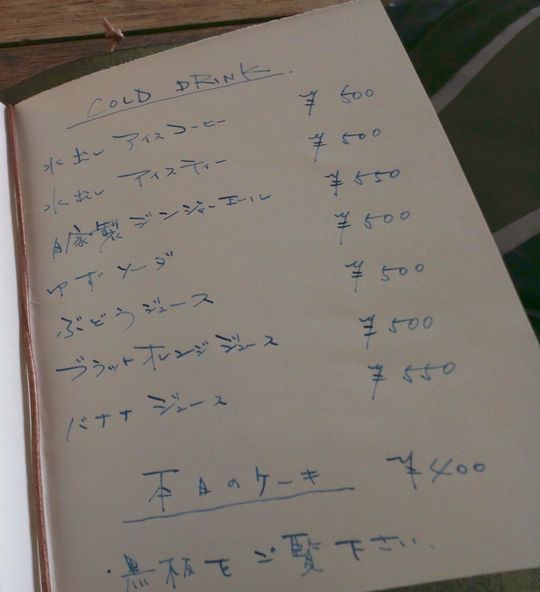 COLD DRINK.
水出し アイスコーヒー ¥500
水出し アイスティー ¥500
自家製 ジンジャーエール ¥550
ゆず ソーダ ¥500
ぶどうジュース ¥500
ブラットオレンジジュース ¥500
バナナ ジュース ¥550
本日のケーキ ¥400
・黒板をご覧下さい.